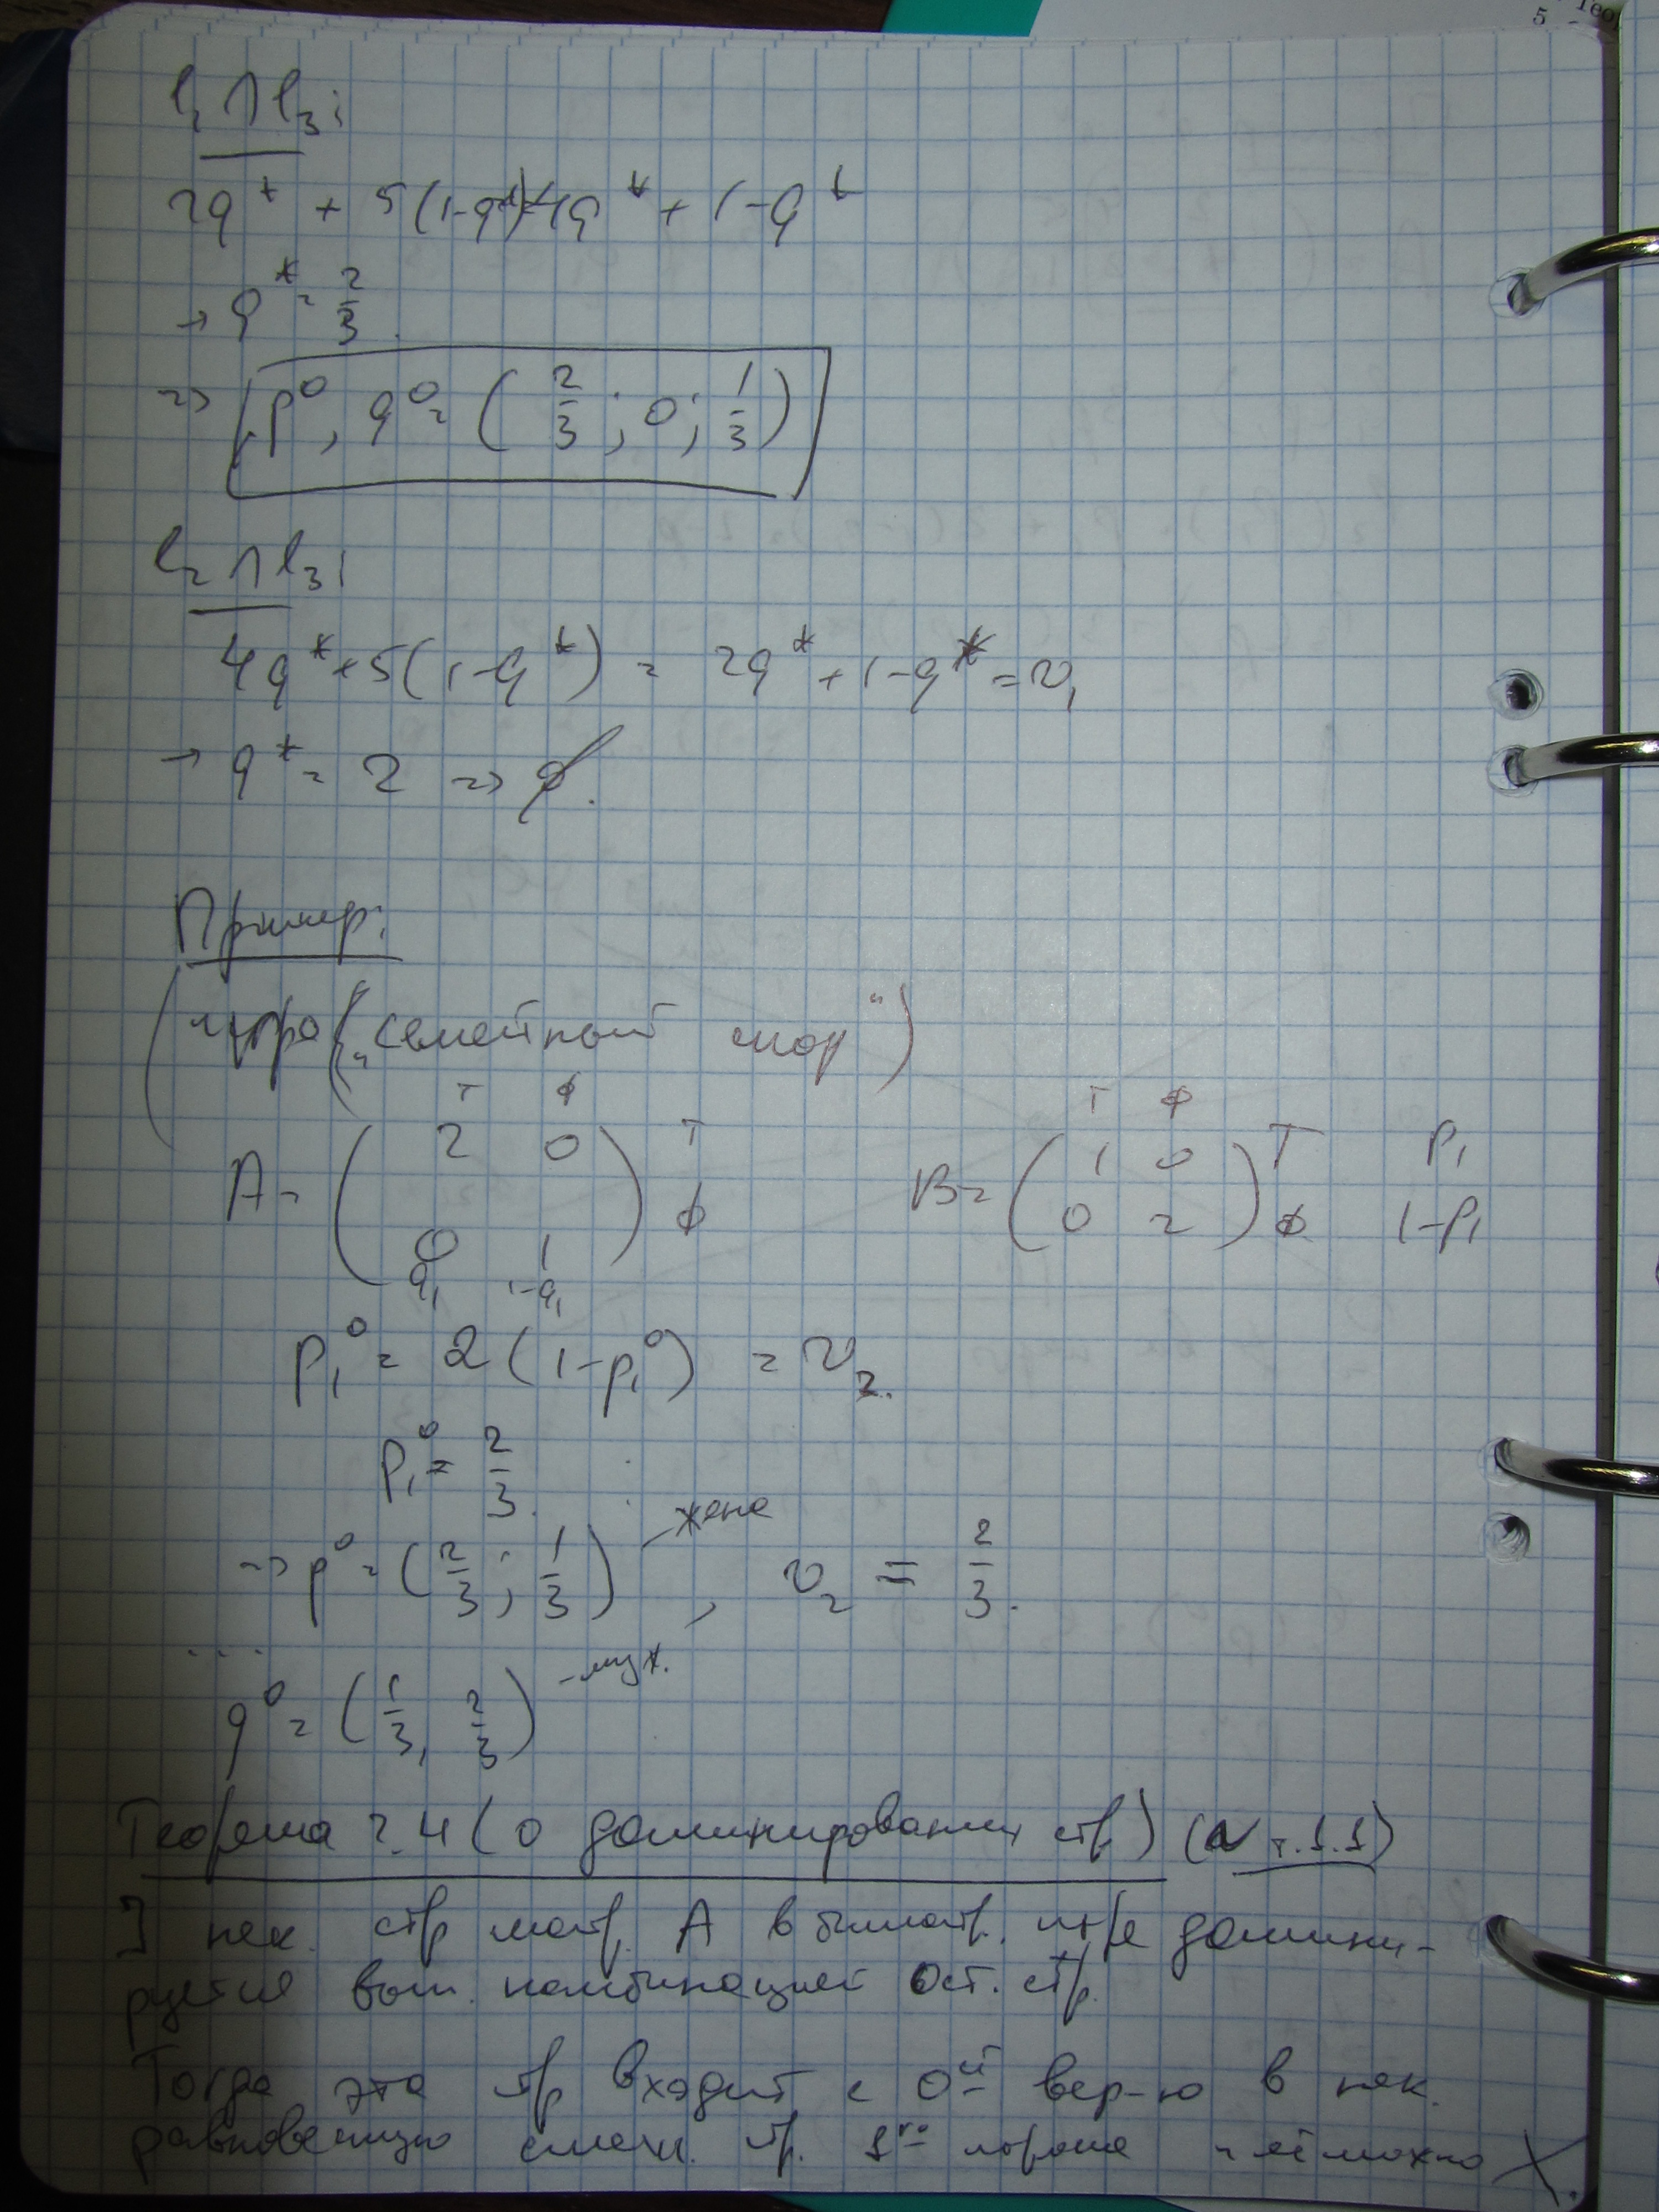 l₁ ∩ l₃:
2q* + 5(1-q*) = 4q* + 1-q*
→ q* = 2/3.
=> p⁰, q⁰ = (2/3; 0; 1/3)
l₂ ∩ l₃:
4q* + 5(1-q*) = 2q* + 1-q* = v₁
→ q* = 2 => ∅.
Пример:
(игра („семейный спор“)
т ф
A = (2 0) т
(0 1) ф
q₁ 1-q₁
т ф
B = (1 0) т p₁
(0 2) ф 1-p₁
p₁⁰ = 2(1-p₁⁰) = v₂.
p₁⁰ = 2/3.
=> p⁰ = (2/3; 1/3) - жена, v₂ = 2/3.
...
q⁰ = (1/3, 2/3) - муж.
Теорема 2.4 (о доминировании стр.) (~ т.1.1)
] нек. стр. матр. A в биматр. игре домини-
руется вып. комбинацией ост. стр.
Тогда эта стр. входит с 0ой вер-ю в нек.
равновесную смеш. стр. 1го игрока и её можно X.
5
Тео